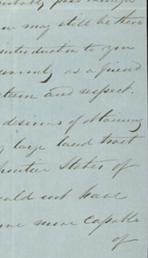 may still be there
introduction to you
as a friend
esteem and respect.
desirous of obtaining
large land tract
frontier States of
could not have
one more capable
of